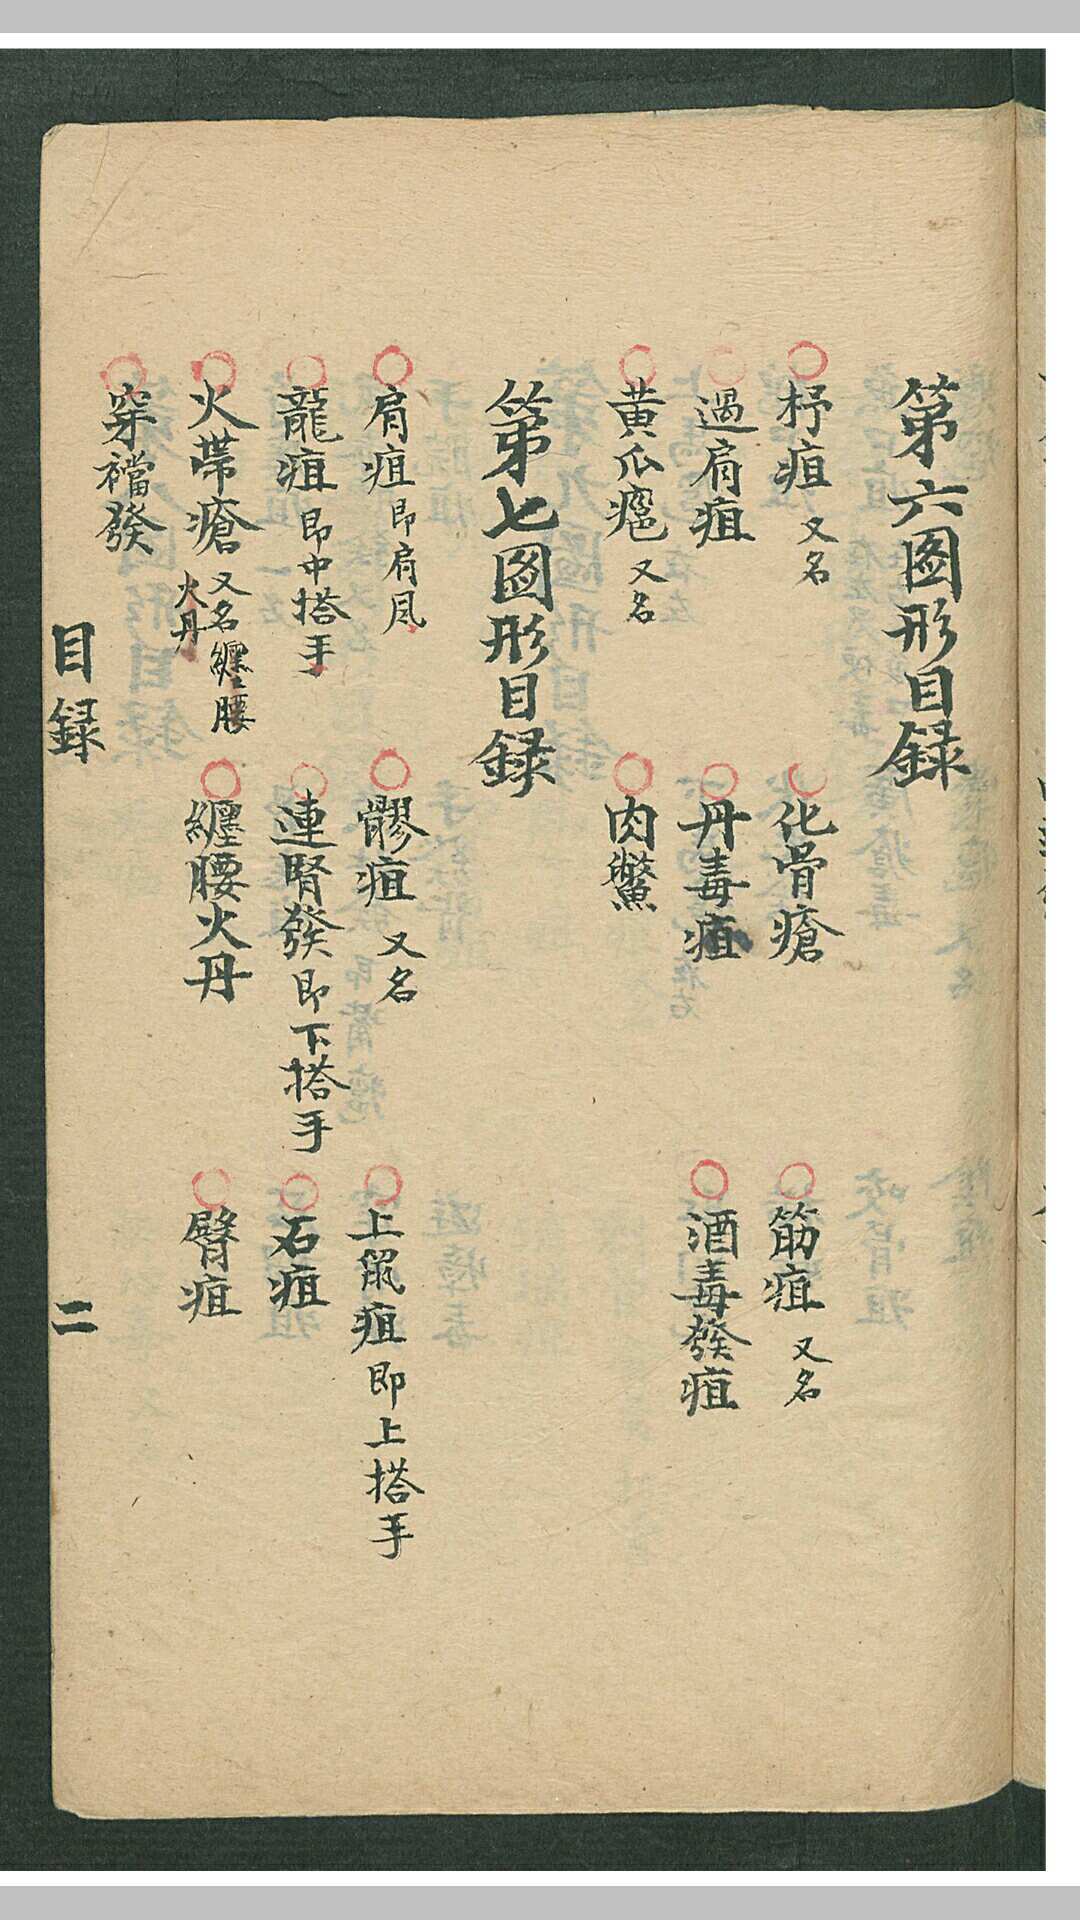 第六圖形目録
杼疽 又名 化骨瘡 筋疽 又名
過肩疽 丹毒疽 酒毒發疽
黄瓜癰 又名 肉鱉
第七圖形目録
肩疽 即肩风 髎疽 又名 上鼠疽 即上搭手
龍疽 即中搭手 連腎發 即下搭手 石疽
火帶瘡 又名纏腰火丹 纏腰火丹 臂疽
穿襠發
目録 二